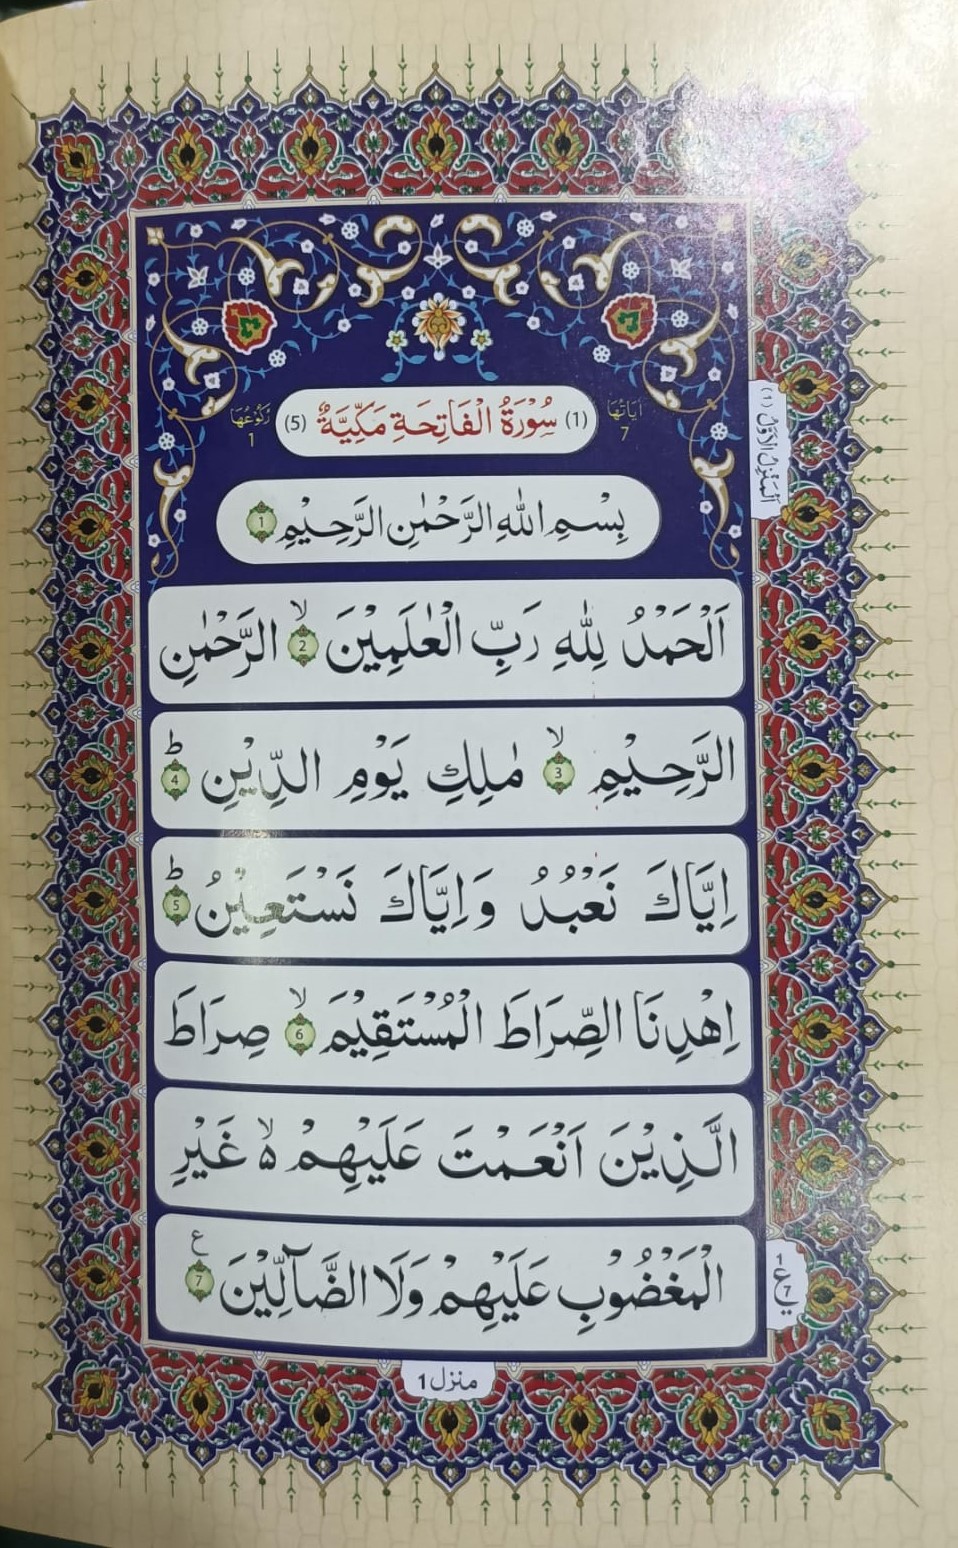 اٰيَاتُهَا 7
(1) سُوْرَةُ الْفَاتِحَةِ مَكِّيَّةٌ (5)
رُكُوْعُهَا 1
بِسْمِ اللّٰهِ الرَّحْمٰنِ الرَّحِيْمِ 1
اَلْحَمْدُ لِلّٰهِ رَبِّ الْعٰلَمِيْنَ ۙ 2 الرَّحْمٰنِ
الرَّحِيْمِ ۙ 3 مٰلِكِ يَوْمِ الدِّيْنِ ؕ 4
اِيَّاكَ نَعْبُدُ وَاِيَّاكَ نَسْتَعِيْنُ ؕ 5
اِهْدِنَا الصِّرَاطَ الْمُسْتَقِيْمَ ۙ 6 صِرَاطَ
الَّذِيْنَ اَنْعَمْتَ عَلَيْهِمْ ۙ۬ غَيْرِ
الْمَغْضُوْبِ عَلَيْهِمْ وَلَا الضَّآلِّيْنَ ع 7
اَلْمَنْزِلُ الْاَوَّلُ (1)
1 ع 7
منزل 1